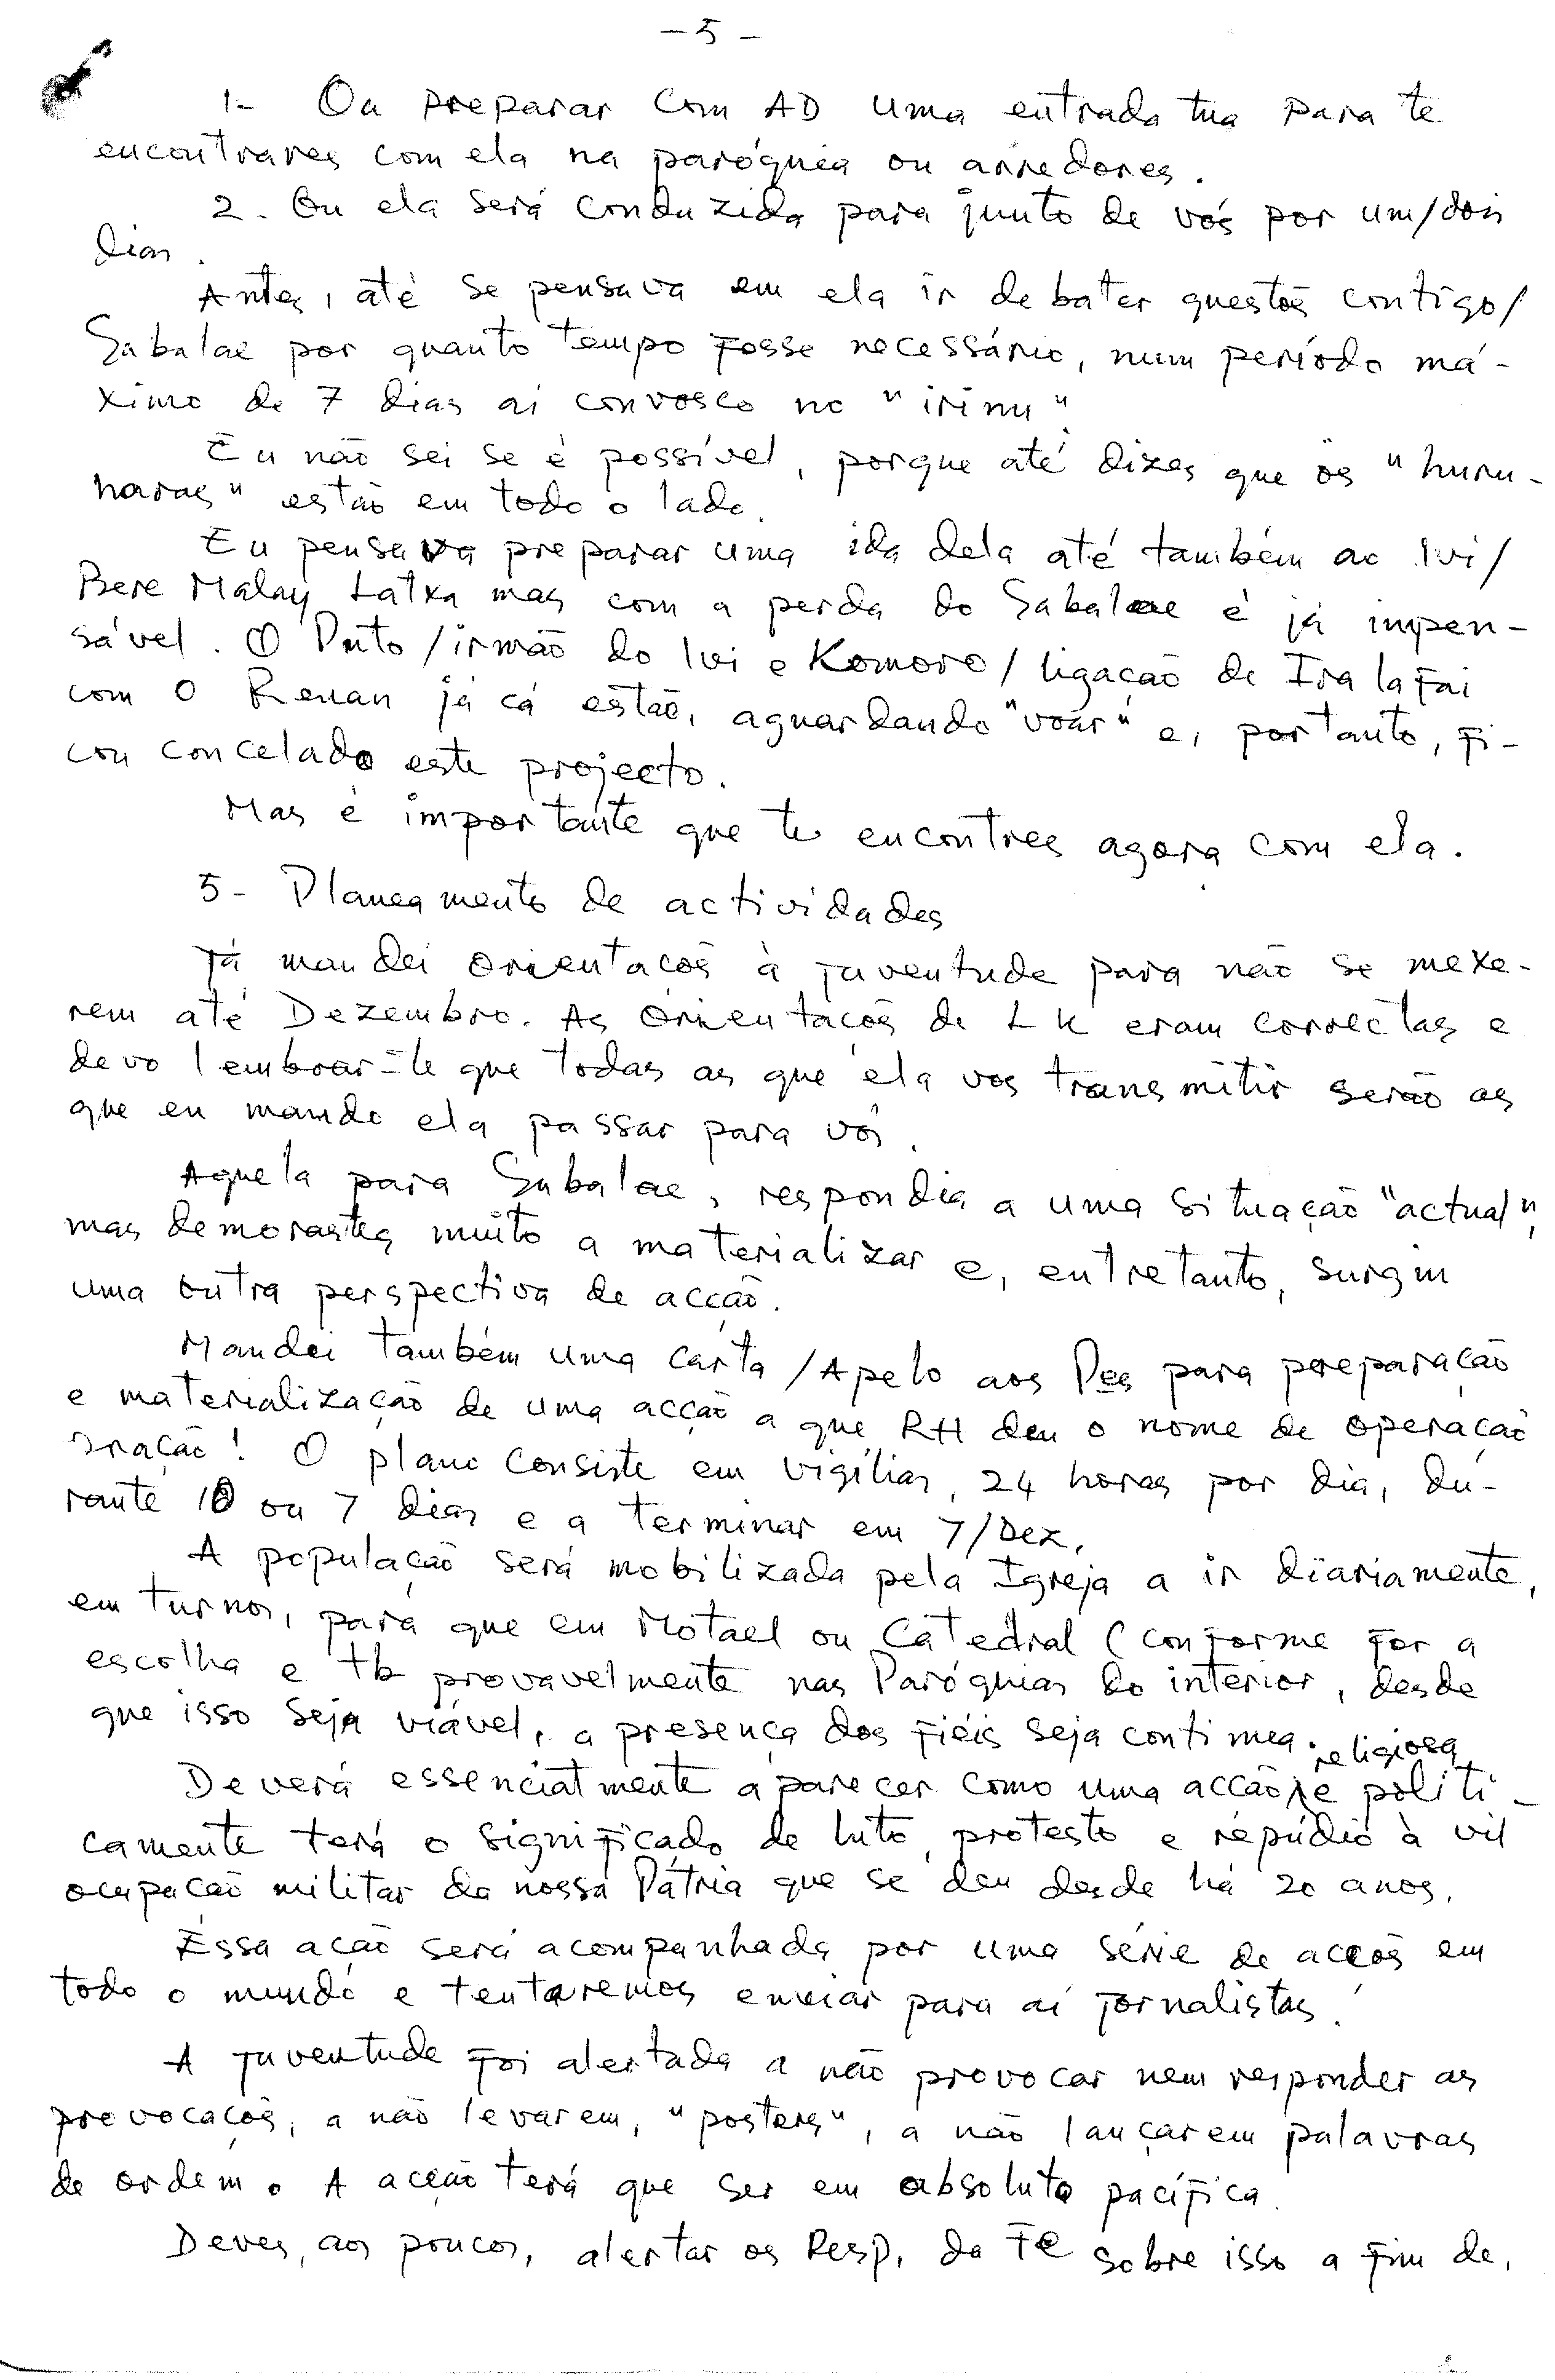 - 5 -
1- Ou preparar com AD uma entrada tua para te
encontrares com ela na paróquia ou arredores.
2. Ou ela será conduzida para junto de vós por um/dois
dias.
Antes, até se pensava em ela ir debater questões contigo/
Sabalae por quanto tempo fosse necessário, num período má-
ximo de 7 dias aí convosco no "irinu".
Eu não sei se é possível, porque até dizes que os "hunu-
haras" estão em todo o lado.
Eu pensava preparar uma ida dela até também ao Ivi/
Bere Malay Latxa mas com a perda do Sabalae é já impen-
sável. O Puto/irmão do Ivi e Komoro/ligação de Iralafai
com o Renan já cá estão, aguardando "voar" e, portanto, fi-
cou concelado este projecto.
Mas é importante que te encontres agora com ela.
5- Planeamento de actividades
Já mandei orientações à juventude para não se mexe-
rem até Dezembro. As orientações de LK eram correctas e
devo lembrar-te que todas as que ela vos transmitir serão as
que eu mando ela passar para vós.
Aquela para Sabalae, respondia a uma situação "actual",
mas demorastes muito a materializar e, entretanto, surgiu
uma outra perspectiva de acção.
Mandei também uma carta/Apelo aos Pes para preparação
e materialização de uma acção a que RH deu o nome de operação
oração! O plano consiste em vigílias, 24 horas por dia, du-
rante 10 ou 7 dias e a terminar em 7/Dez.
A população será mobilizada pela Igreja a ir diariamente,
em turnos, para que em Motael ou Catedral (conforme for a
escolha e tb provavelmente nas Paróquias do interior, desde
que isso seja viável, a presença dos fiéis seja contínua.
Deverá essencialmente aparecer como uma acção religiosa e politi-
camente terá o significado de luto, protesto e repúdio à vil
ocupação militar da nossa Pátria que se deu desde há 20 anos.
Essa ação será acompanhada por uma série de acções em
todo o mundo e tentaremos enviar para aí jornalistas.
A juventude foi alertada a não provocar nem responder as
provocações, a não levarem, "posters", a não lançarem palavras
de ordem. A acção terá que ser em absoluto pacífica.
Deves, aos poucos, alertar os Resp. da Fe sobre isso a fim de,